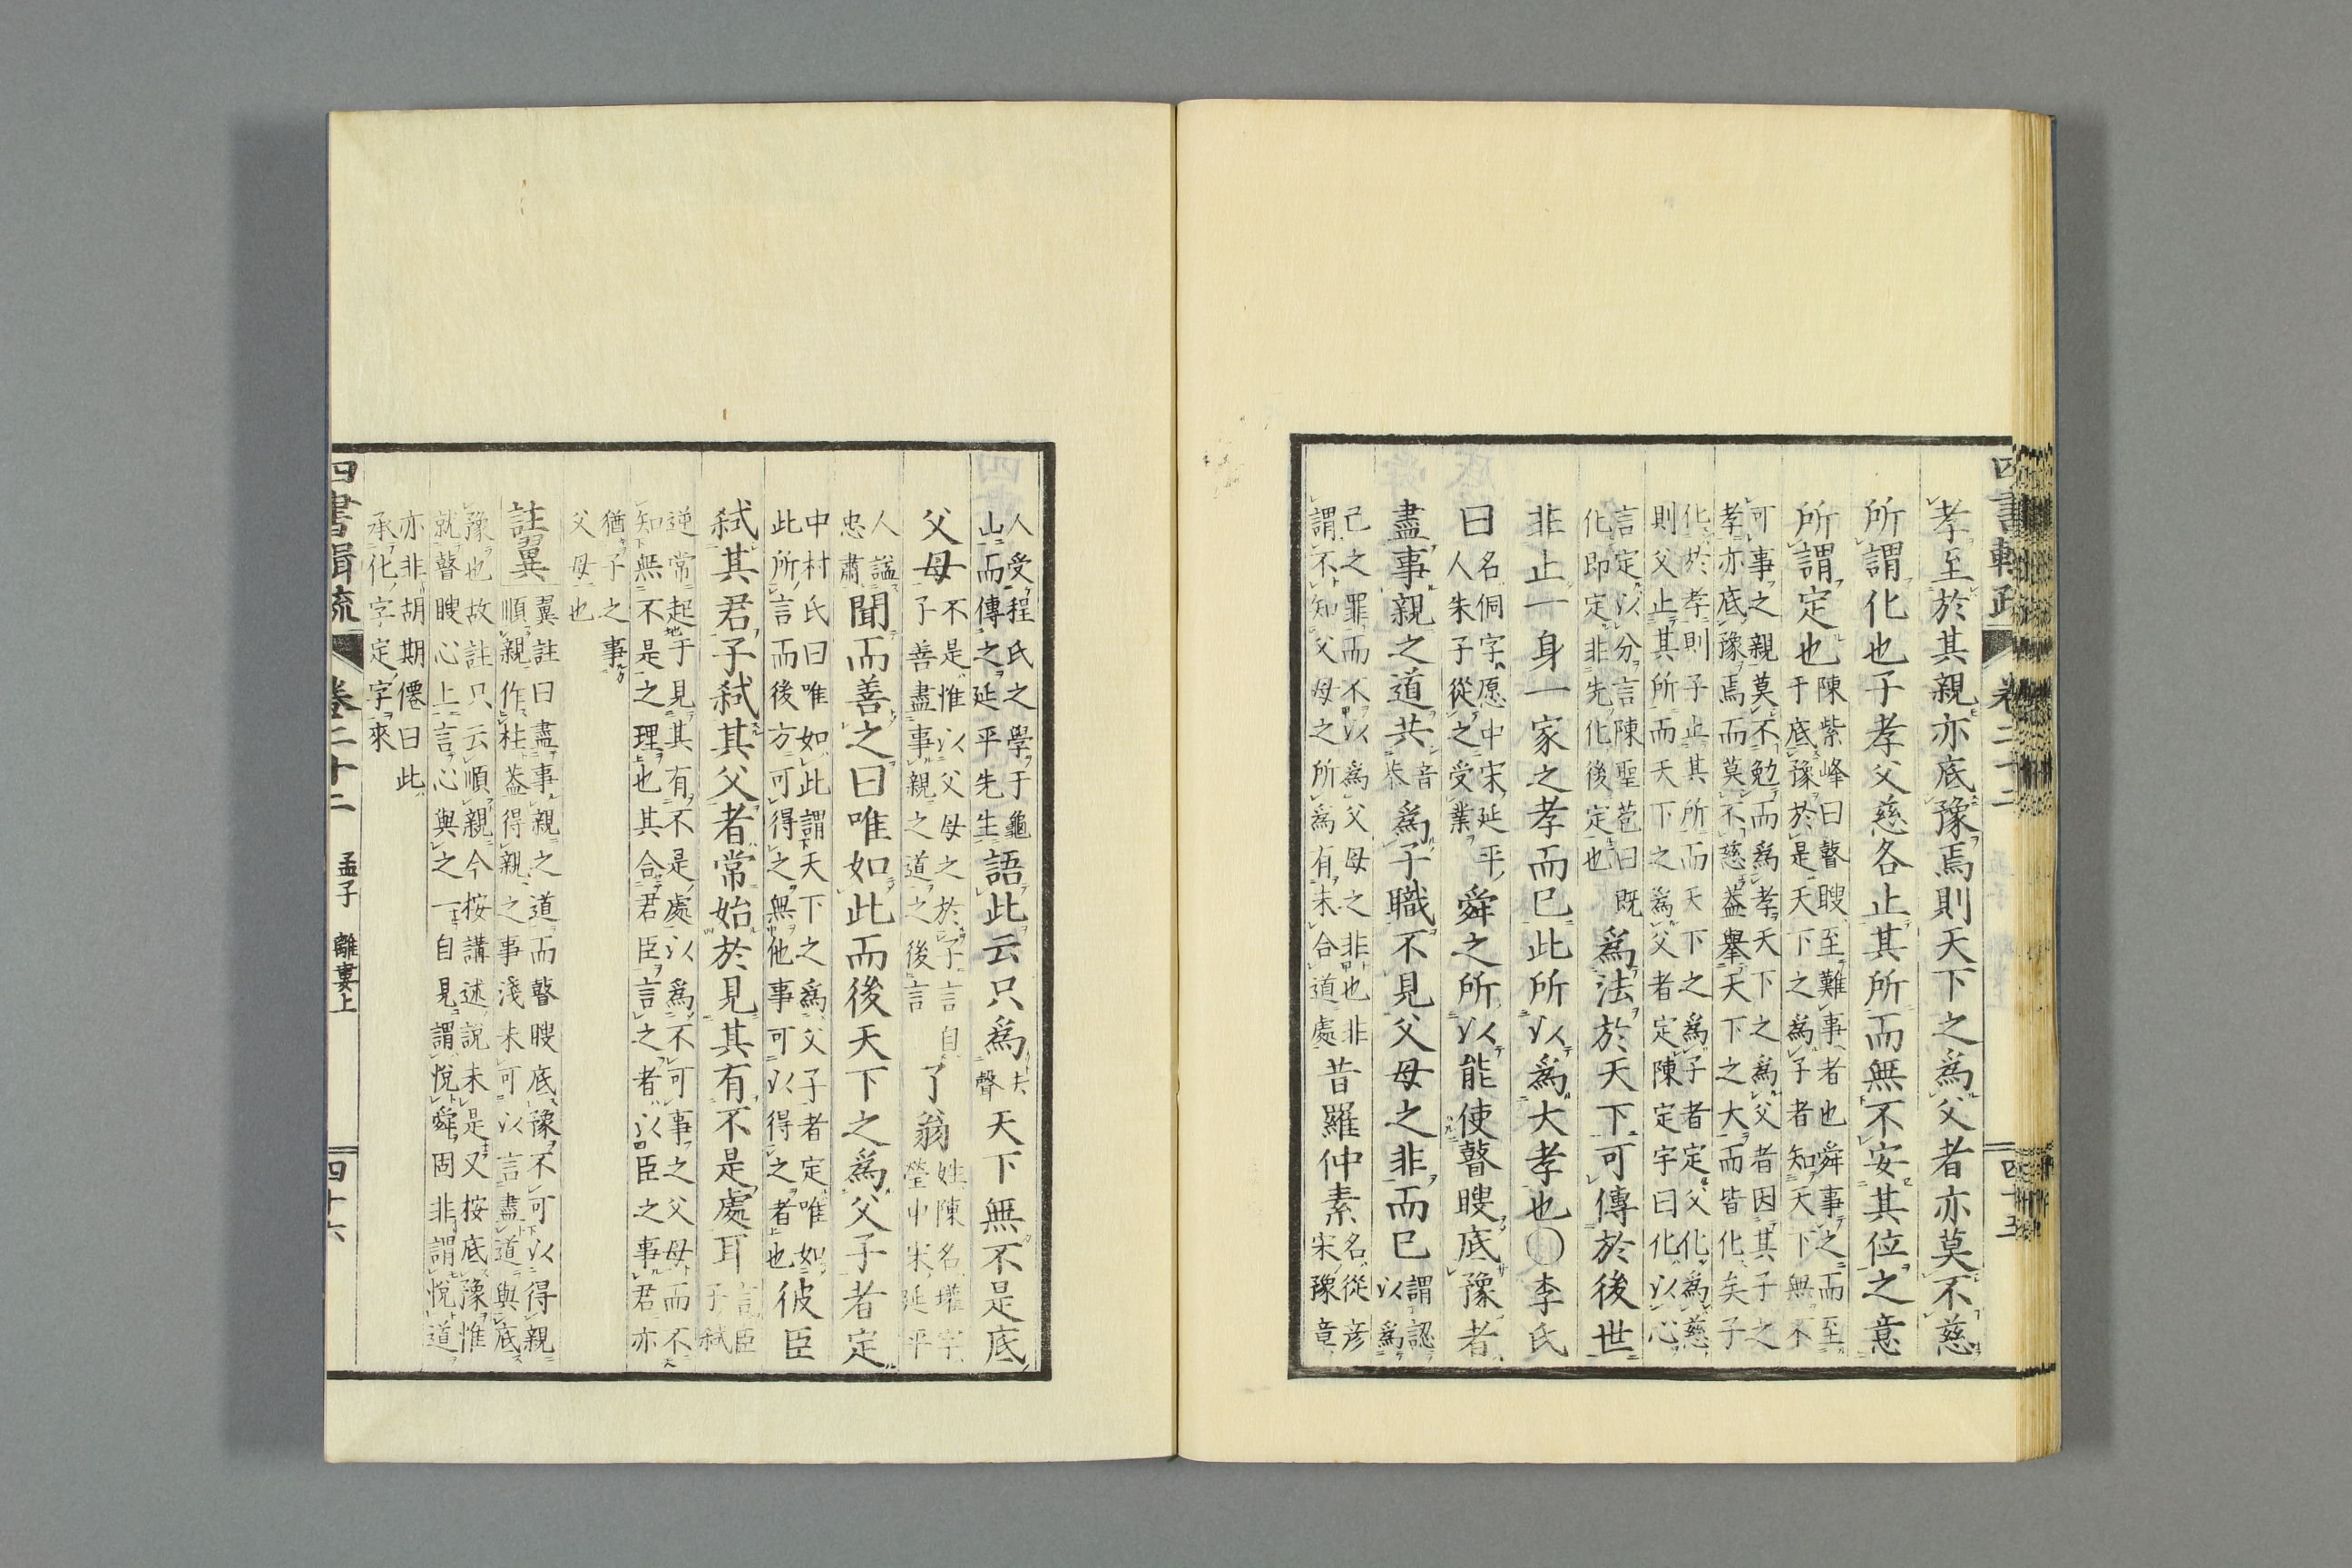 孝至於其親亦底豫焉則天下之爲父者亦莫不慈
所謂化也子孝父慈各止其所而無不安其位之意
所謂定也
陳紫峰曰瞽瞍至難事者也舜事之而至
于底豫於是天下之爲子者知天下無不
可事之親莫不勉而爲孝天下之爲父者因其子之
孝亦底豫焉而莫不慈蓋舉天下之大而皆化矣子
化於孝則子止其所而天下之爲子者定父化爲慈
則父止其所而天下之爲父者定陳定宇曰化以心
言定以分言陳聖苞曰既
化即定非先化後定也
爲法於天下可傳於後世
非止一身一家之孝而已此所以爲大孝也〇李氏
曰
名侗字愿中宋延平
人朱子從之受業
舜之所以能使瞽瞍底豫者
盡事親之道共
音
恭
爲子職不見父母之非而已
謂認
以爲
己之罪而不以爲父母之非也非
謂不知父母之所爲有未合道處
昔羅仲素
名從彥
宋豫章
人受程氏之學于龜
山而傳之延平先生
語此云只爲
去
聲
天下無不是底
父母
不是惟以父母之於子言自
子善盡事親之道之後言
了翁
姓陳名瓘字
瑩中宋延平
人諡
忠肅
聞而善之曰唯如此而後天下之爲父子者定
中村氏曰唯如此謂天下之爲父子者定唯如
此所言而後方可得之無他事可以得之者也
彼臣
弑其君子弑其父者常始於見其有不是處耳
言臣
子弑
逆常起于見其有不是處以爲不可事之父母而不
知無不是之理也其合君臣言之者以臣之事君亦
猶子之事
父母也
註翼
翼註曰盡事親之道而瞽瞍底豫不可以得親
順親作柱蓋得親之事淺未可以言盡道與底
豫也故註只云順親今按講述說未是又按底豫惟
就瞽瞍心上言心與之一自見謂悅舜固非謂悅道
亦非胡期僊曰此
承化字定字來
四書輯疏 卷二十二 孟子 離婁上 四十六